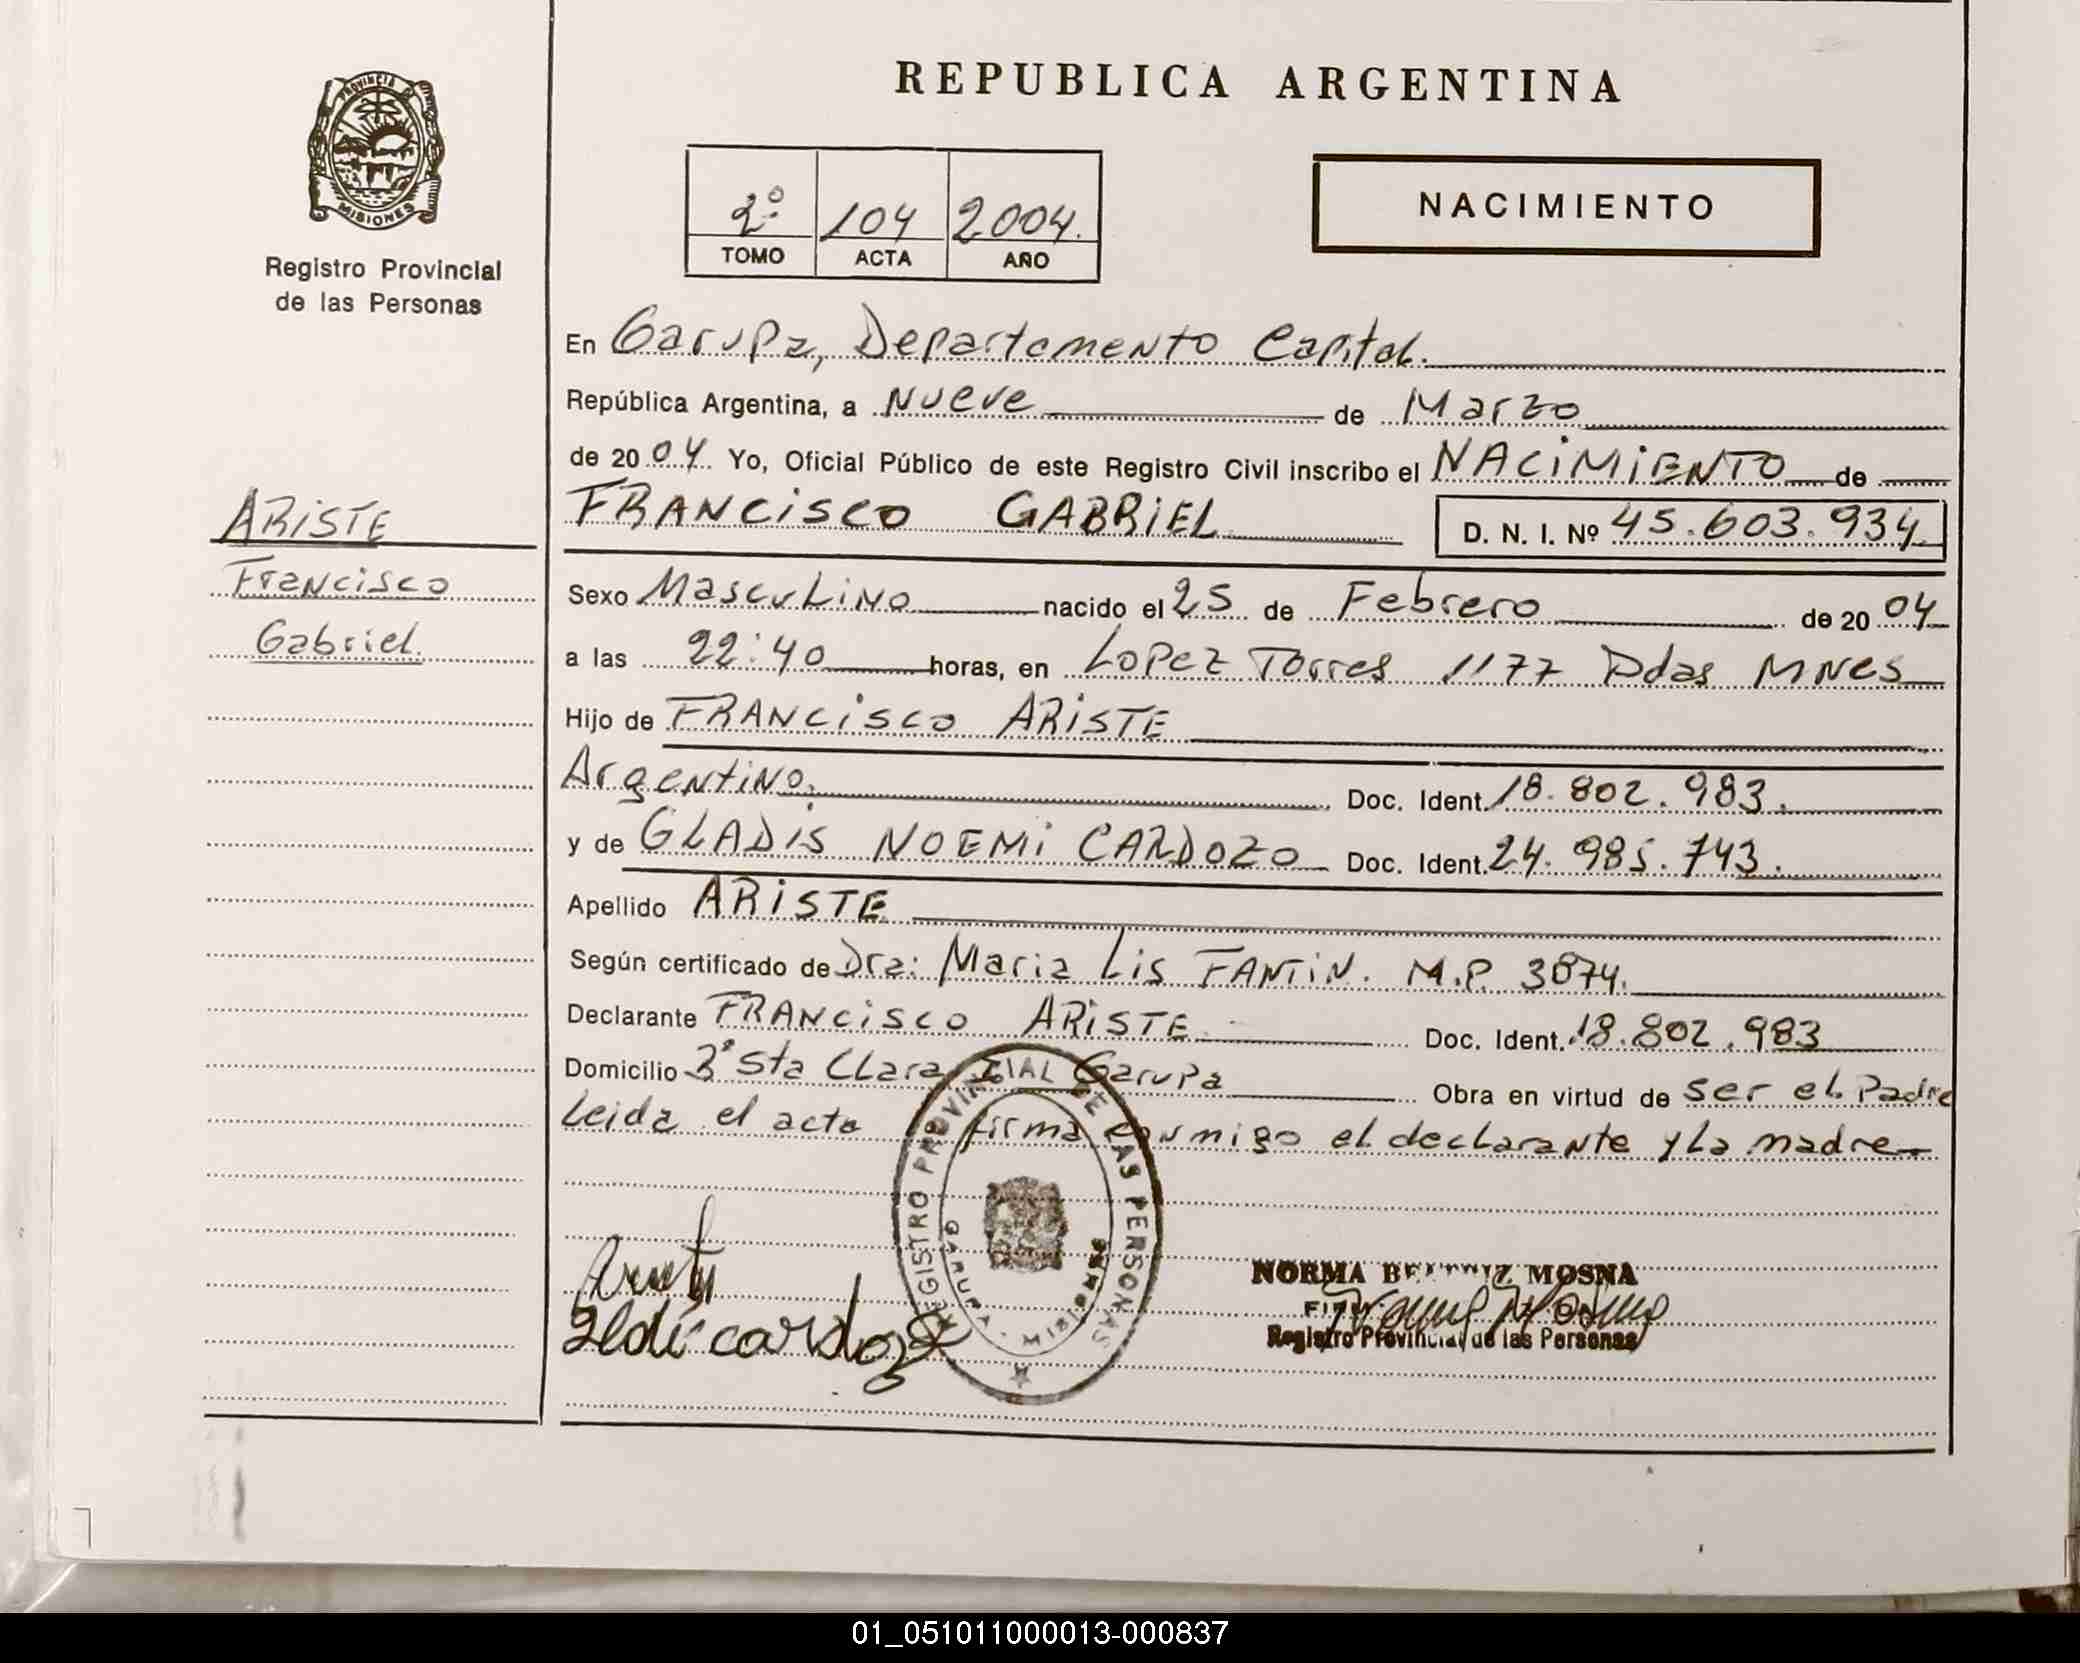 PROVINCIA DE
MISIONES
Registro Provincial
de las Personas
REPUBLICA ARGENTINA
2º 104 2004.
TOMO ACTA AÑO
NACIMIENTO
En Garupa, Departamento Capital.
República Argentina, a Nueve de Marzo
de 2004 Yo, Oficial Público de este Registro Civil inscribo el NACIMIENTO de
FRANCISCO GABRIEL D. N. I. Nº 45.603.934
ARISTE
Francisco
Gabriel.
Sexo Masculino nacido el 25 de Febrero de 2004
a las 22:40 horas, en Lopez Torres 1177 Pdas MNES
Hijo de FRANCISCO ARISTE
Argentino. Doc. Ident. 18.802.983.
y de GLADIS NOEMI CARDOZO Doc. Ident. 24.985.743.
Apellido ARISTE
Según certificado de Dra: Maria Lis FANTIN. M.P. 3874.
Declarante FRANCISCO ARISTE Doc. Ident. 18.802.983
Domicilio Bº Sta Clara I Garupa Obra en virtud de ser el Padre
Leida el acta firma conmigo el declarante y La madre
REGISTRO PROVINCIAL DE LAS PERSONAS
GARUPA - MISIONES
cardozo
NORMA BEATRIZ MOSNA
Registro Provincial de las Personas
01_051011000013-000837